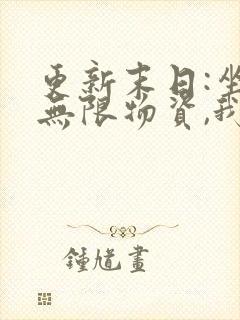 更新末日:坐
無限物資,我
鍾馗畫